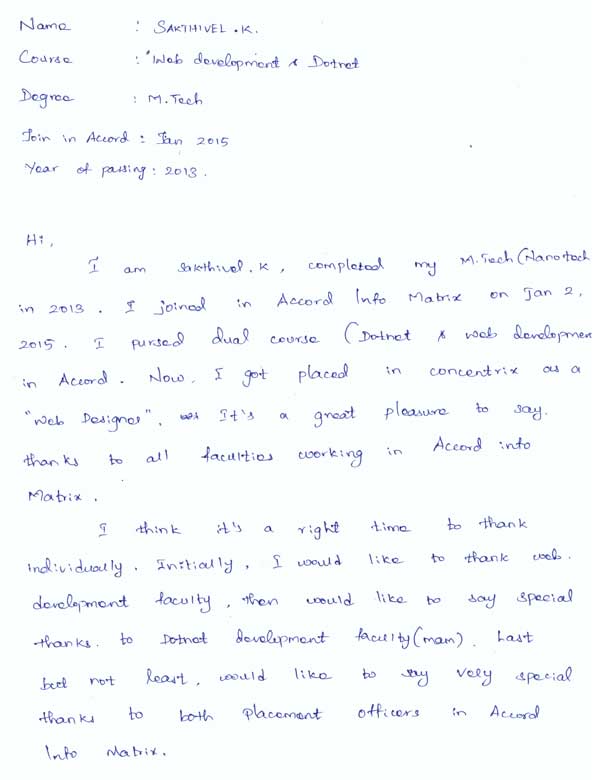 Name : SAKTHIVEL.K.
Course : "Web development & Dotnet
Degree : M.Tech
Join in Accord : Jan 2015
Year of passing : 2013.
Hi,
I am Sakthivel.K, completed my M.Tech (Nanotech
in 2013. I joined in Accord Info Matrix on Jan 2,
2015. I pursed dual course (Dotnet & web developmen
in Accord. Now, I got placed in concentrix as a
"Web Designer". It's a great pleasure to say.
thanks to all faculties working in Accord into
Matrix.
I think it's a right time to thank
individually. Initially, I would like to thank web.
development faculty, then would like to say special
thanks. to Dotnet development faculty (mam). Last
but not least, would like to say very special
thanks to both placement officers in Accord
Info Matrix.